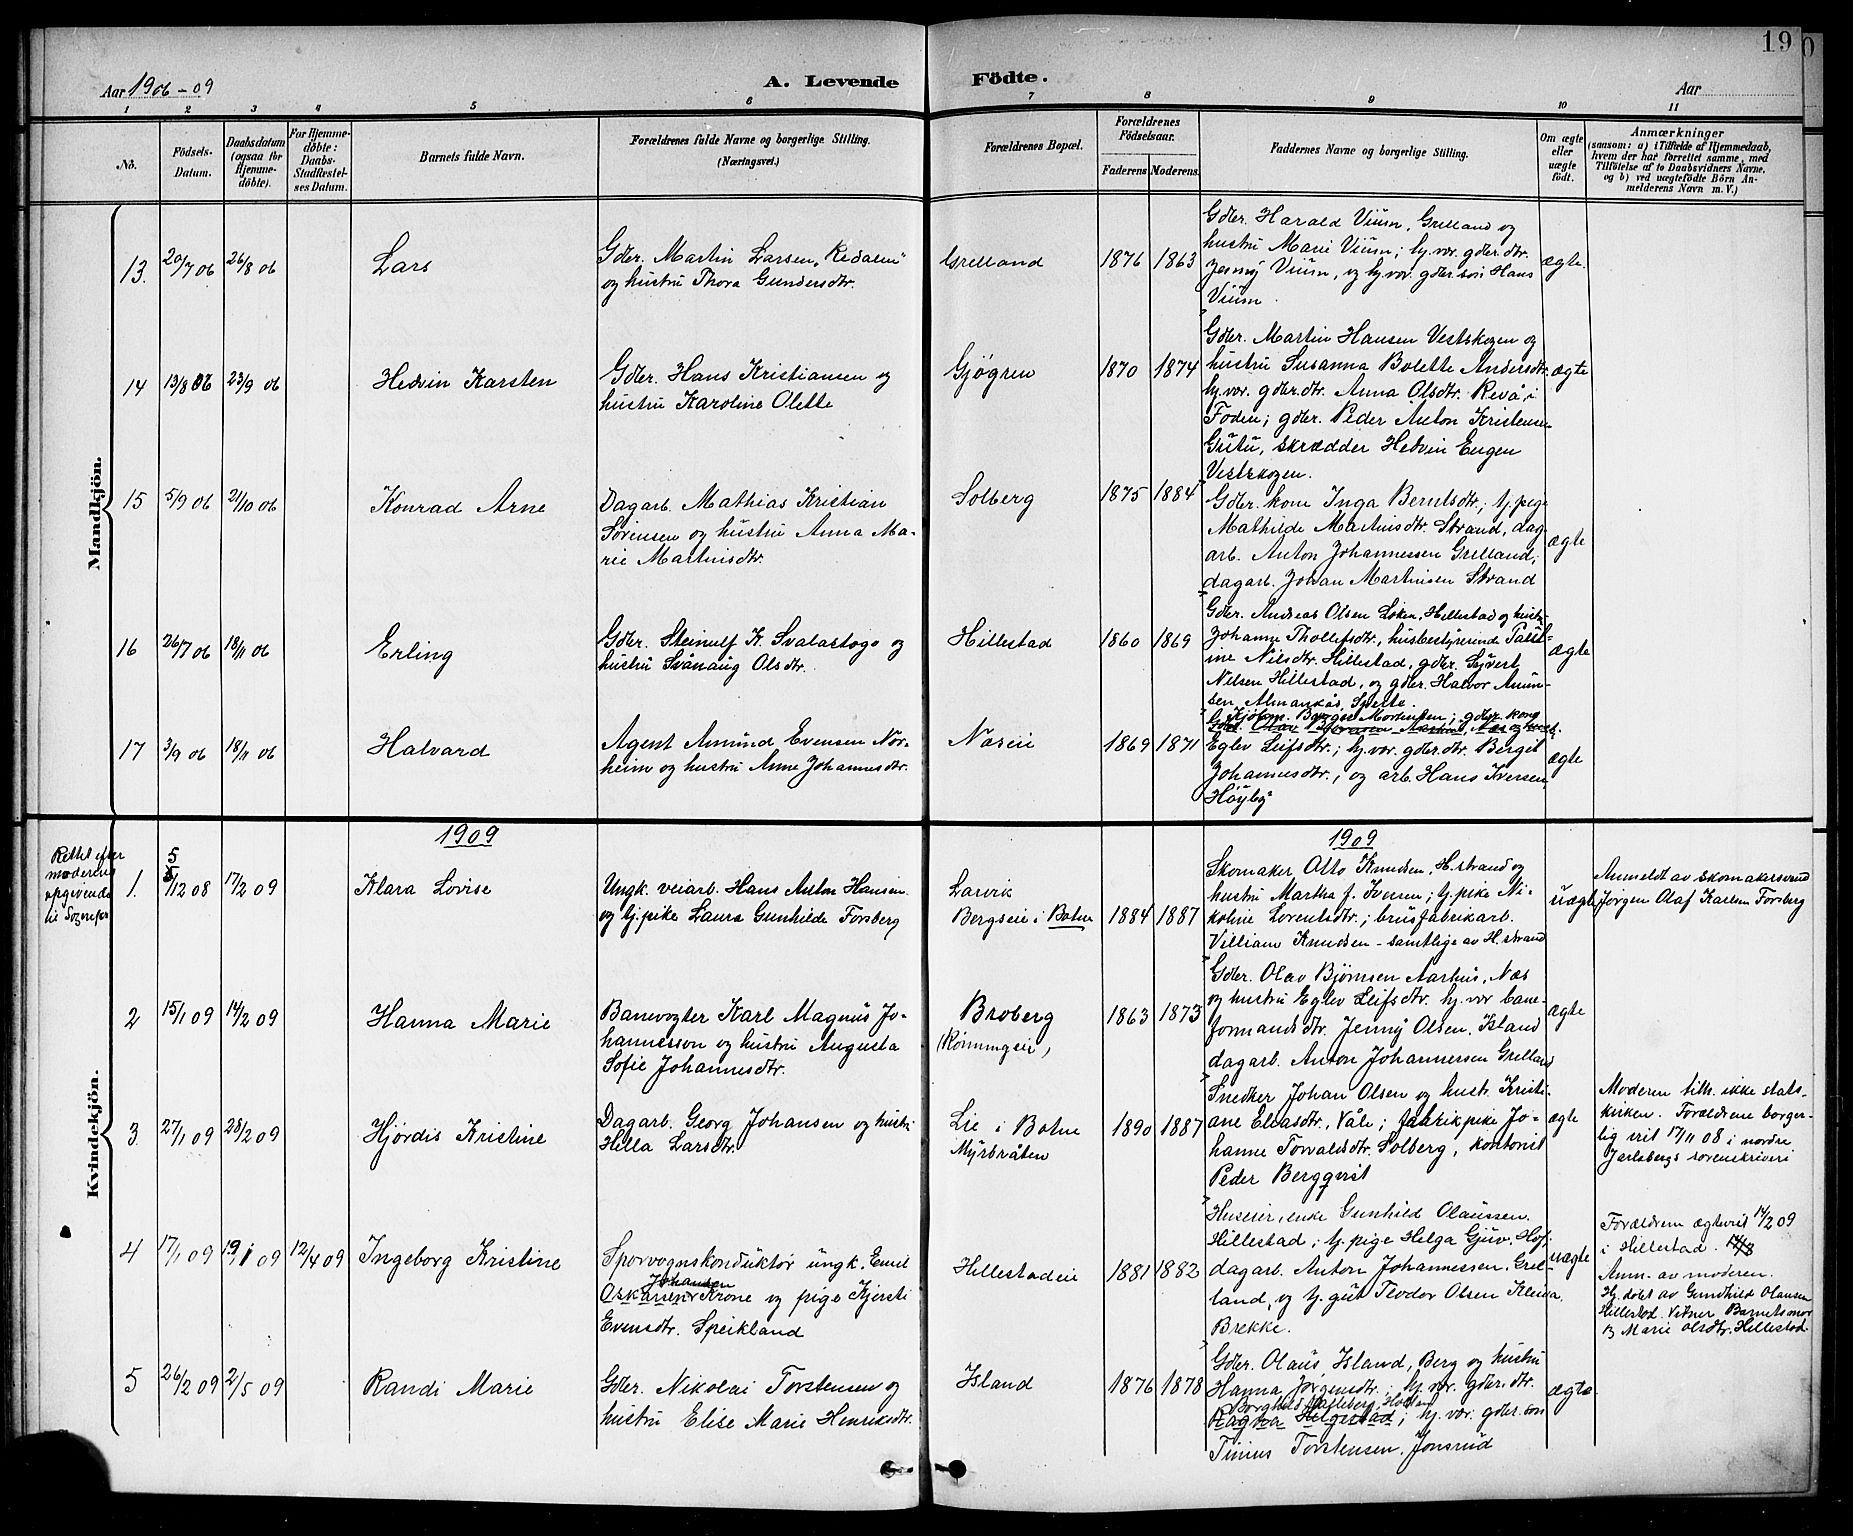 19
Aar 1906-09
A. Levende Födte.
Aar
1 2 3 4 5 6 7 8 9 10 11
No.
Födsels-Datum.
Daabsdatum (ogsaa for Hjemmedöbte).
For Hjemmedöbte: Daabs-Stadfæstelses Datum.
Barnets fulde Navn.
Forældrenes fulde Navne og borgerlige Stilling.
(Næringsvei.)
Forældrenes Bopæl.
Forældrenes Födselsaar.
Faderens. Moderens.
Faddernes Navne og borgerlige Stilling.
Om ægte eller uægte födt.
Anmærkninger
(saasom: a) i Tilfælde af Hjemmedaab,
hvem der har forrettet samme, med
Tilföielse af to Daabsvidners Navne,
og b) ved uægtefödte Börn Anmelderens Navn m. V.)
Mandkjön.
13. 20/7 06 26/8 06 Lars
Gdbr. Martin Larsen "Redalen"
og hustru Thora Gundersdtr.
Grelland 1876 1863
Gdbr. Harald Vium, Grelland og
hustru Marie Vium; hj.vær. gdbr.dtr.
Jenny Vium, og hj.vær. gdbr.sön Hans
Vium.
ægte.
14 13/8 06 23/9 06 Hedvin Karsten
Gdbr. Hans Kristiansen og
hustru Karoline Olette
Gjøgren 1870 1874
Gdbr. Martin Hansen Vestskogen og
hustru Susanna Bolette Andersdtr.
hj.vær. gdbr.dtr. Anna Olsdtr. Revå i
Foden; gdbr. Peder Anton Kristensen
Gutu, skrædder Hedvin Eugen
Vestskogen.
ægte
15 5/9 06 21/10 06 Konrad Arne
Dagarb. Mathias Kristian
Sörensen og hustru Anna Ma-
rie Martinsdtr.
Solberg 1875 1884
Gdbr. kone Inga Berntsdtr.; tj.pige
Mathilde Martinsdtr. Strand, dag-
arb. Anton Johannessen Grelland,
dagarb. Johan Martinsen Strand
ægte
16 26/7 06 18/11 06 Erling
Gdbr. Steinulf K. Svalastoga og
hustru Svanaug Olsdtr.
Hillestad 1860 1869
Gdbr. Andreas Olsen Løken, Hillestad og hustru
Johanne Thollefsdtr., husbestyrerinde
ine Nilsdtr. Hillestad, gdbr. Syvert
Nilsen Hillestad, og gdbr. Halvor Amun-
sen
ægte
17 3/9 06 18/11 06 Halvard
Agent Amund Evensen Nor-
heim og hustru Anne Johannesdtr.
Næseie 1869 1871
Mortensen; gdbr. kone
Eglev Leifsdtr.; hj.vær. gdbr.dtr. Bergit
Johannesdtr., og arb. Hans Iversen,
Höyby
ægte
1909
1909
Kvindekjön.
Rettet efter
moderens
opgivende
til Sogneprest
1. 5/12 08 17/2 09 Klara Lovise
Ungk. veiarb. Hans Anton Hansen
og tj.pike Laura Gunhilde Forsberg
Larvik
Bergseie i Botne 1884 1887
Skomaker Otto Knudsen, H.strand og
hustru Martha f. Iversen; tj.pike Ni-
koline Lorentsdtr.; brusfabrikarb.
Villiam Knudsen - samtlige av H.strand
uægte
Anmeldt av skomakersvend
Jørgen Olaf Karlsen Forsberg
2 15/1 09 14/2 09 Hanna Marie
Banevogter Karl Magnus Jo-
hannesson og hustru Augusta
Sofie Johannesdtr.
Broberg
(Rönningeie) 1863 1873
Gdbr. Olav Bjørnsen Aarhus, Næs
og hustru Eglev Leifsdtr. hj.vær bane-
formandsdtr. Jenny Olsen, Island
dagarb. Anton Johannessen Grelland
ægte
3 27/1 09 28/2 09 Hjördis Kristine
Dagarb. Georg Johansen og hustru
Hella Larsdtr.
Lie i Botne
Myrbråten 1890 1887
Snedker Johan Olsen og hust. Kristi-
ane Eliasdtr., Våle; fabrikpike Jo-
hanne Torvaldsdtr. Solberg, kontorist
Peder Bergqvist
ægte
Moderen tilh. ikke stats-
kirken. Forældrene borger-
lig viet 17/11 08 i nordre
Jarlsbergs sorenskriveri
4 17/1 09 19/1 09 12/4 09 Ingeborg Kristine
Sporvognskonduktör ungk. Emil
Johansen
Oskarsen Krone og pige Kjersti
Evensdtr. Speikland
Hillestadeie 1881 1882
Huseier, enke Gunhild Olaussen.
Hillestad; tj.pige Helga Gjuv, Hof;
dagarb. Anton Johannessen, Grel-
land, og tj.gut Teodor Olsen Kleiva,
Brekke.
uægte
Forældrene ægteviet 14/2 09
i Hillestad.
Anm. av moderen.
Hj.döbt av Gundhild Olausen
Hillestad. Vitner Barnets mor
og Marie Olsdtr. Hillestad
5 26/2 09 2/5 09 Randi Marie
Gdbr. Nikolai Torstensen og
hustru Elise Marie Henriksdtr.
Island 1876 1878
Gdbr. Olaus Island, Berg og hustru
Hanna Jørgensdtr.; hj.vær. gdbr.dtr.
Ragna Helgestad; hj.vær. gdbr.sön
Tinius Torstensen, Jonsrud
ægte